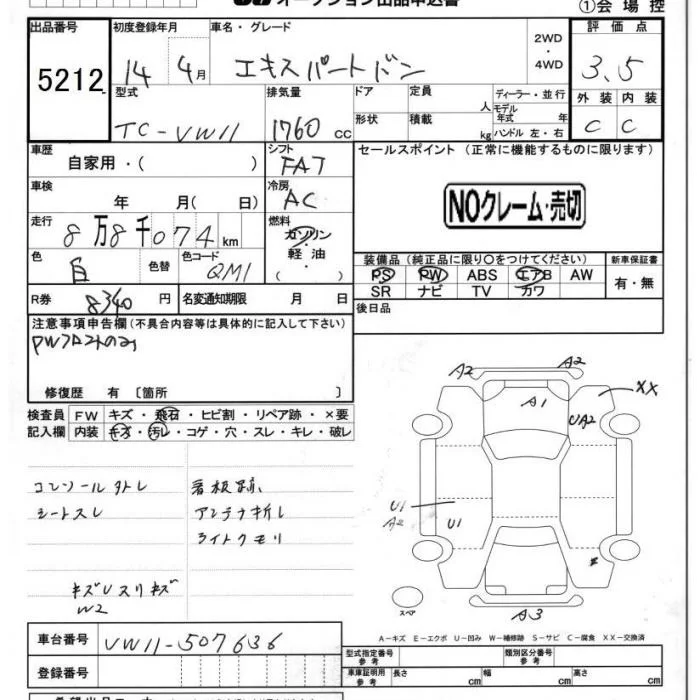 オークション出品申込書
①会場控
出品番号 初度登録年月 車名・グレード 評価点
5212 14年 4月 エキスパートバン 2WD・4WD 3.5
外装 内装
C C
型式 排気量 ドア 定員 人 ディーラー・並行
TC-VW11 1760cc 形状 積載 kg モデル年式 年 ハンドル 左・右
車歴 シフト セールスポイント (正常に機能するものに限ります)
自家用・( ) FAT
車検 冷房 NOクレーム・売切
年 月( 日) AC
走行 燃料
8万8千074km ガソリン
軽油
・( )
色 色替 色コード
白 QM1
装備品 (純正品に限り○をつけてください) 新車保証書
PS PW ABS エアB AW 有・無
SR ナビ TV カワ
R券 8340円 名変通知期限 月 日 後日品
注意事項申告欄(不具合内容等は具体的に記入して下さい)
PWフロントのみ
修復歴 有 〔箇所 〕
検査員 FW キズ・飛石・ヒビ割・リペア跡・×要
記入欄 内装 キズ・汚レ・コゲ・穴・スレ・キレ・破レ
コンソール外レ 看板跡
シートスレ アンテナ折レ
ライトクモリ
キズUスリキズ
W2
A2 A2
A1 XX
UA2
U1
A2 U1
スペア A3
A-キズ E-エクボ U-凹み W-補修跡 S-サビ C-腐食 XX-交換済
車台番号 VW11-507636
登録番号
型式指定番号 参考 類別区分番号 参考
車庫証明用 参考 長さ cm 幅 cm 高さ cm